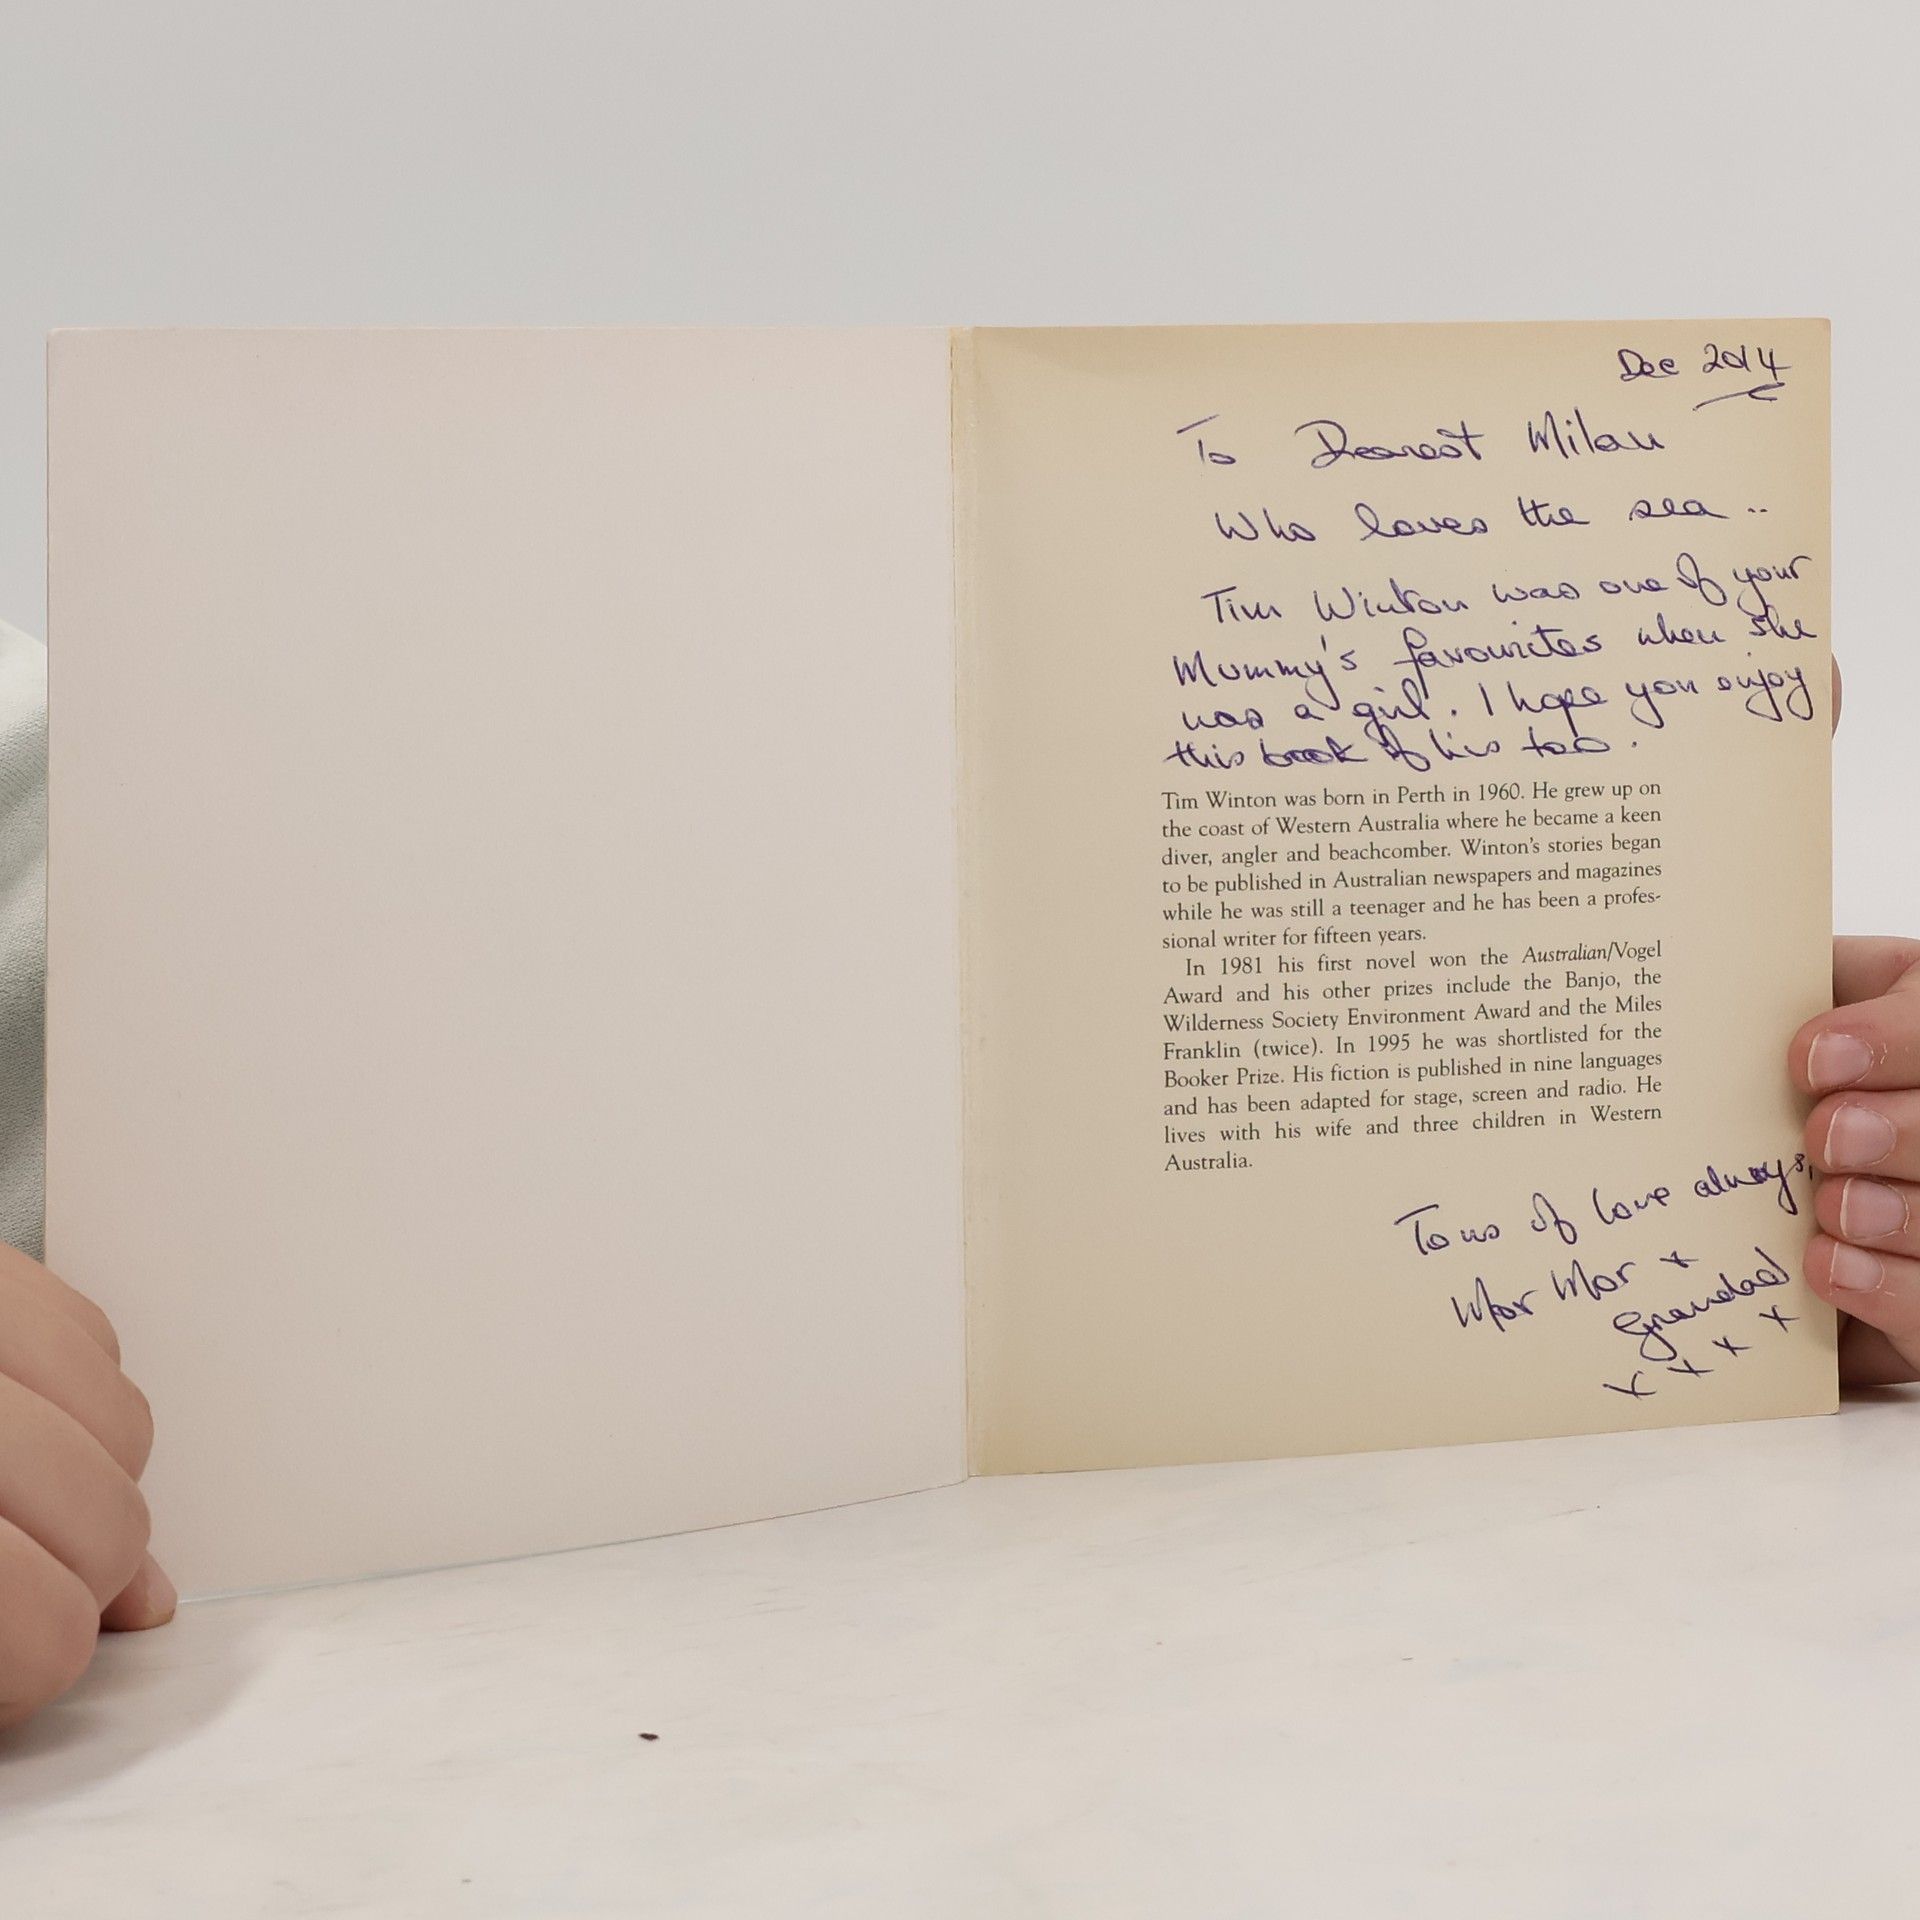 Dec 2014
To Dearest Milan
Who loves the sea ..
Tim Winton was one of your
Mummy's favourites when she
was a girl. I hope you enjoy
this book of his too.
Tim Winton was born in Perth in 1960. He grew up on
the coast of Western Australia where he became a keen
diver, angler and beachcomber. Winton's stories began
to be published in Australian newspapers and magazines
while he was still a teenager and he has been a profes-
sional writer for fifteen years.
In 1981 his first novel won the Australian/Vogel
Award and his other prizes include the Banjo, the
Wilderness Society Environment Award and the Miles
Franklin (twice). In 1995 he was shortlisted for the
Booker Prize. His fiction is published in nine languages
and has been adapted for stage, screen and radio. He
lives with his wife and three children in Western
Australia.
Tons of love always,
Mor Mor +
Grandad
x x x x